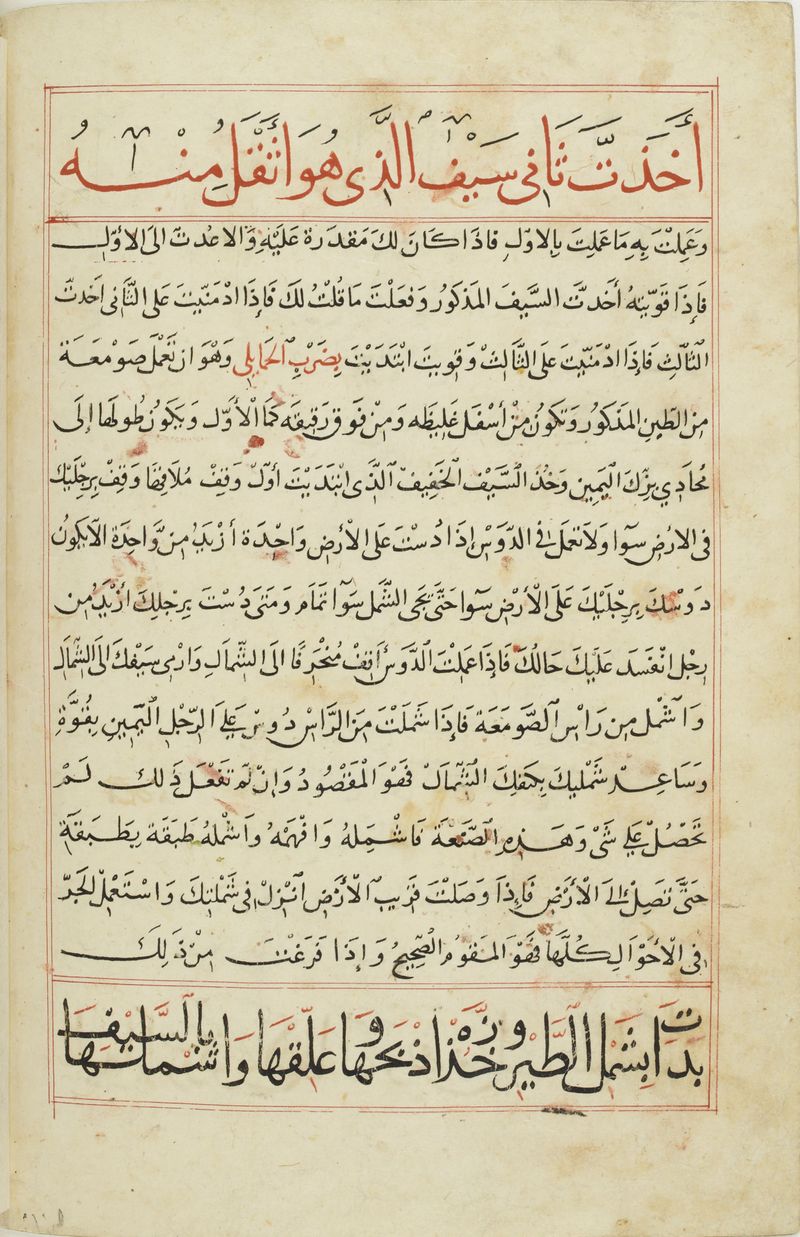 أخذت ثاني سيف الذي هو أثقل منه
وعملت به ما عملت بالاول فاذا كان لك مقدرة عليه والا عدت الى الاول
فإذا قويته أخذت السيف المذكور وفعلت ما قلت لك فاذا ادمنيت على الثاني اخدت
الثالث فإذا ادمنيت على الثالث وقويت ابتديت بضرب الحمايلي وهو ان تعمل صومعة
من الطين المذكور وتكون من أسفل غليظه ومن فوق رقيقه كما الأول ويكون طولها إلى
محادي بزك اليمين وخذ السيف الخفيف الذي ابتديت أول وقف ملاقيها وقف برجليك
في الارض سوا ولا تعمل في الدوس إذا دست على الارض واحدة أزيد من واحدة الا يكون
دوسك برجليك على الأرض سوا حتى يجي الشمل سوا تمام ومتى دست برجلك أزيد من
رجل انفسد عليك حالك فإذا عملت الدوس أقف منحرفا الى الشمال وارمي سيفك الى الشمال
واشمل من راس الصومعة فاذا شملت من الراس دوس على الرجل اليمين بقوة
وساعد شمليك بكتفك الشمال فهو المقصود وان لم تفعل ذلك لم
تحصل على شئ وهذه الصنعة فاشمله وافهمه واشمله طبقة بطبقة
حتى تصل الى الأرض فإذا وصلت قريب الأرض انزل في شملتك واستعمل الجد
في الأحوال كلها فهو المقوم الصحيح وإذا فرغت من ذلك
بدت ابشمل الطير وخذ وزه اذبحها وعلقها واشملها بالسيف